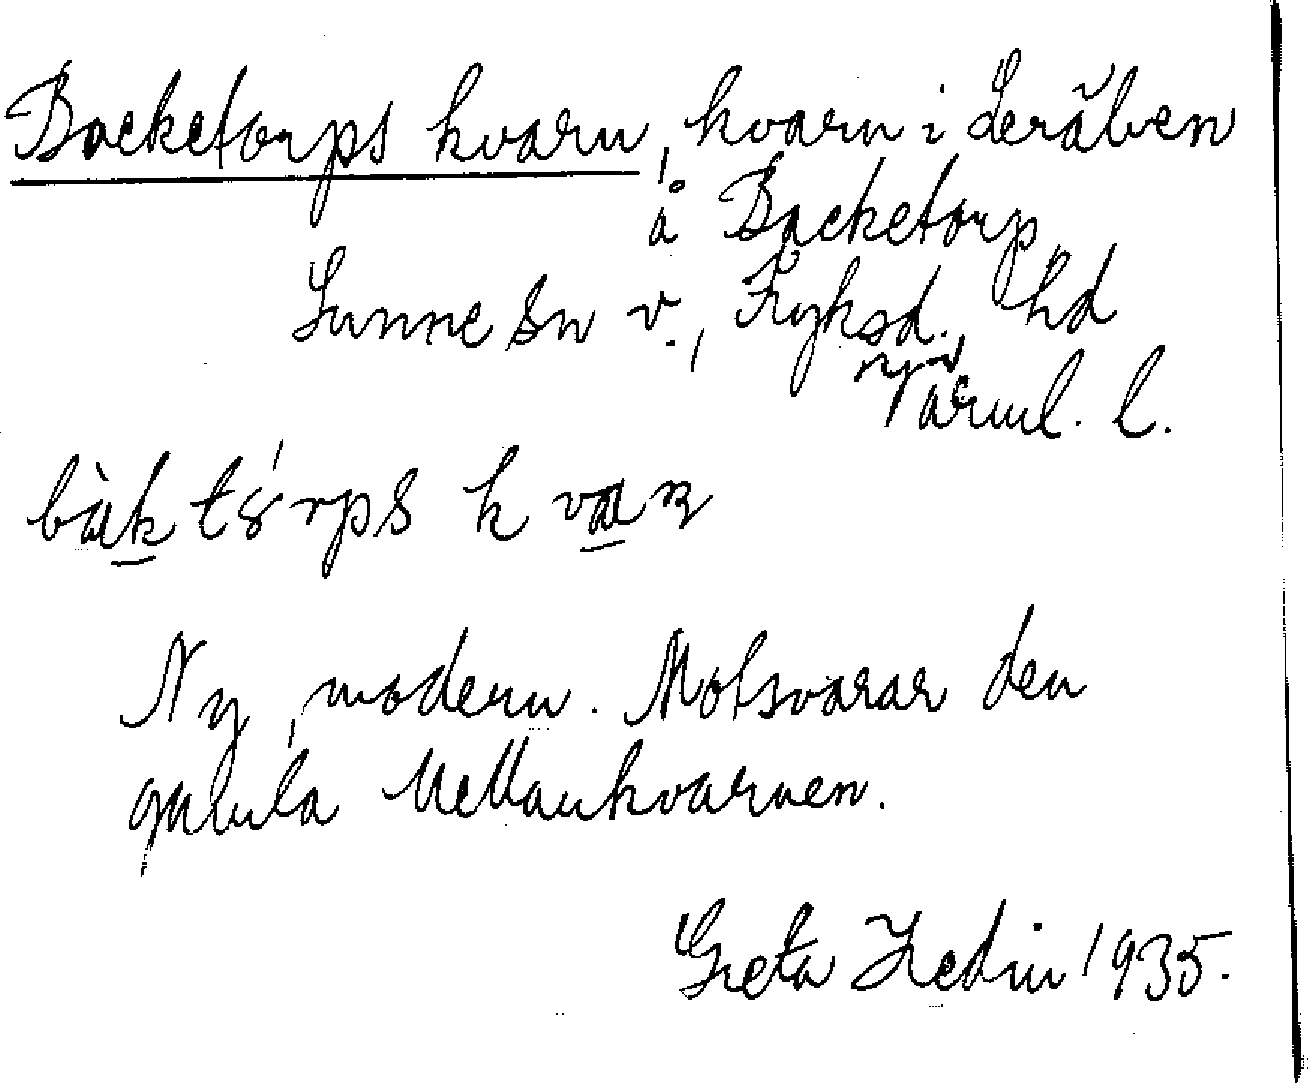 Backetorps kvarn, kvarn i Lerälven
å Backetorp,
Sunne sn v., Fryksd. hd
Värml. l.
bàk tǻrps k van
Ny, modern. Motsvarar den
gamla Mellankvarnen.
Greta Hedin 1935.